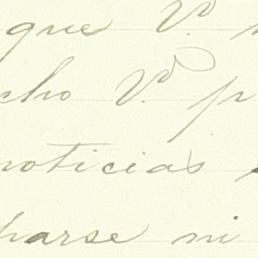 que V.
cho V. p
noticias
harse ni